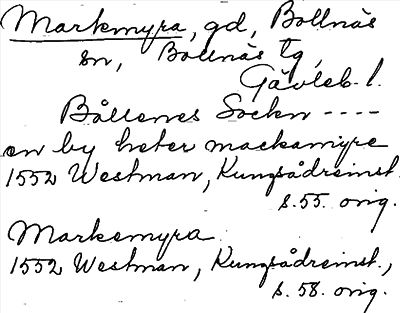 Markmyra, gd, Bollnäs
sn, Bollnäs tg,
Gävleb. l.
Bållenes Sockn ----
en by heter mackamyre
1552 Westman, Kungsådreinst.
s. 55. orig.
Markemyra
1552 Westman, Kungsådreinst.,
s. 58. orig.